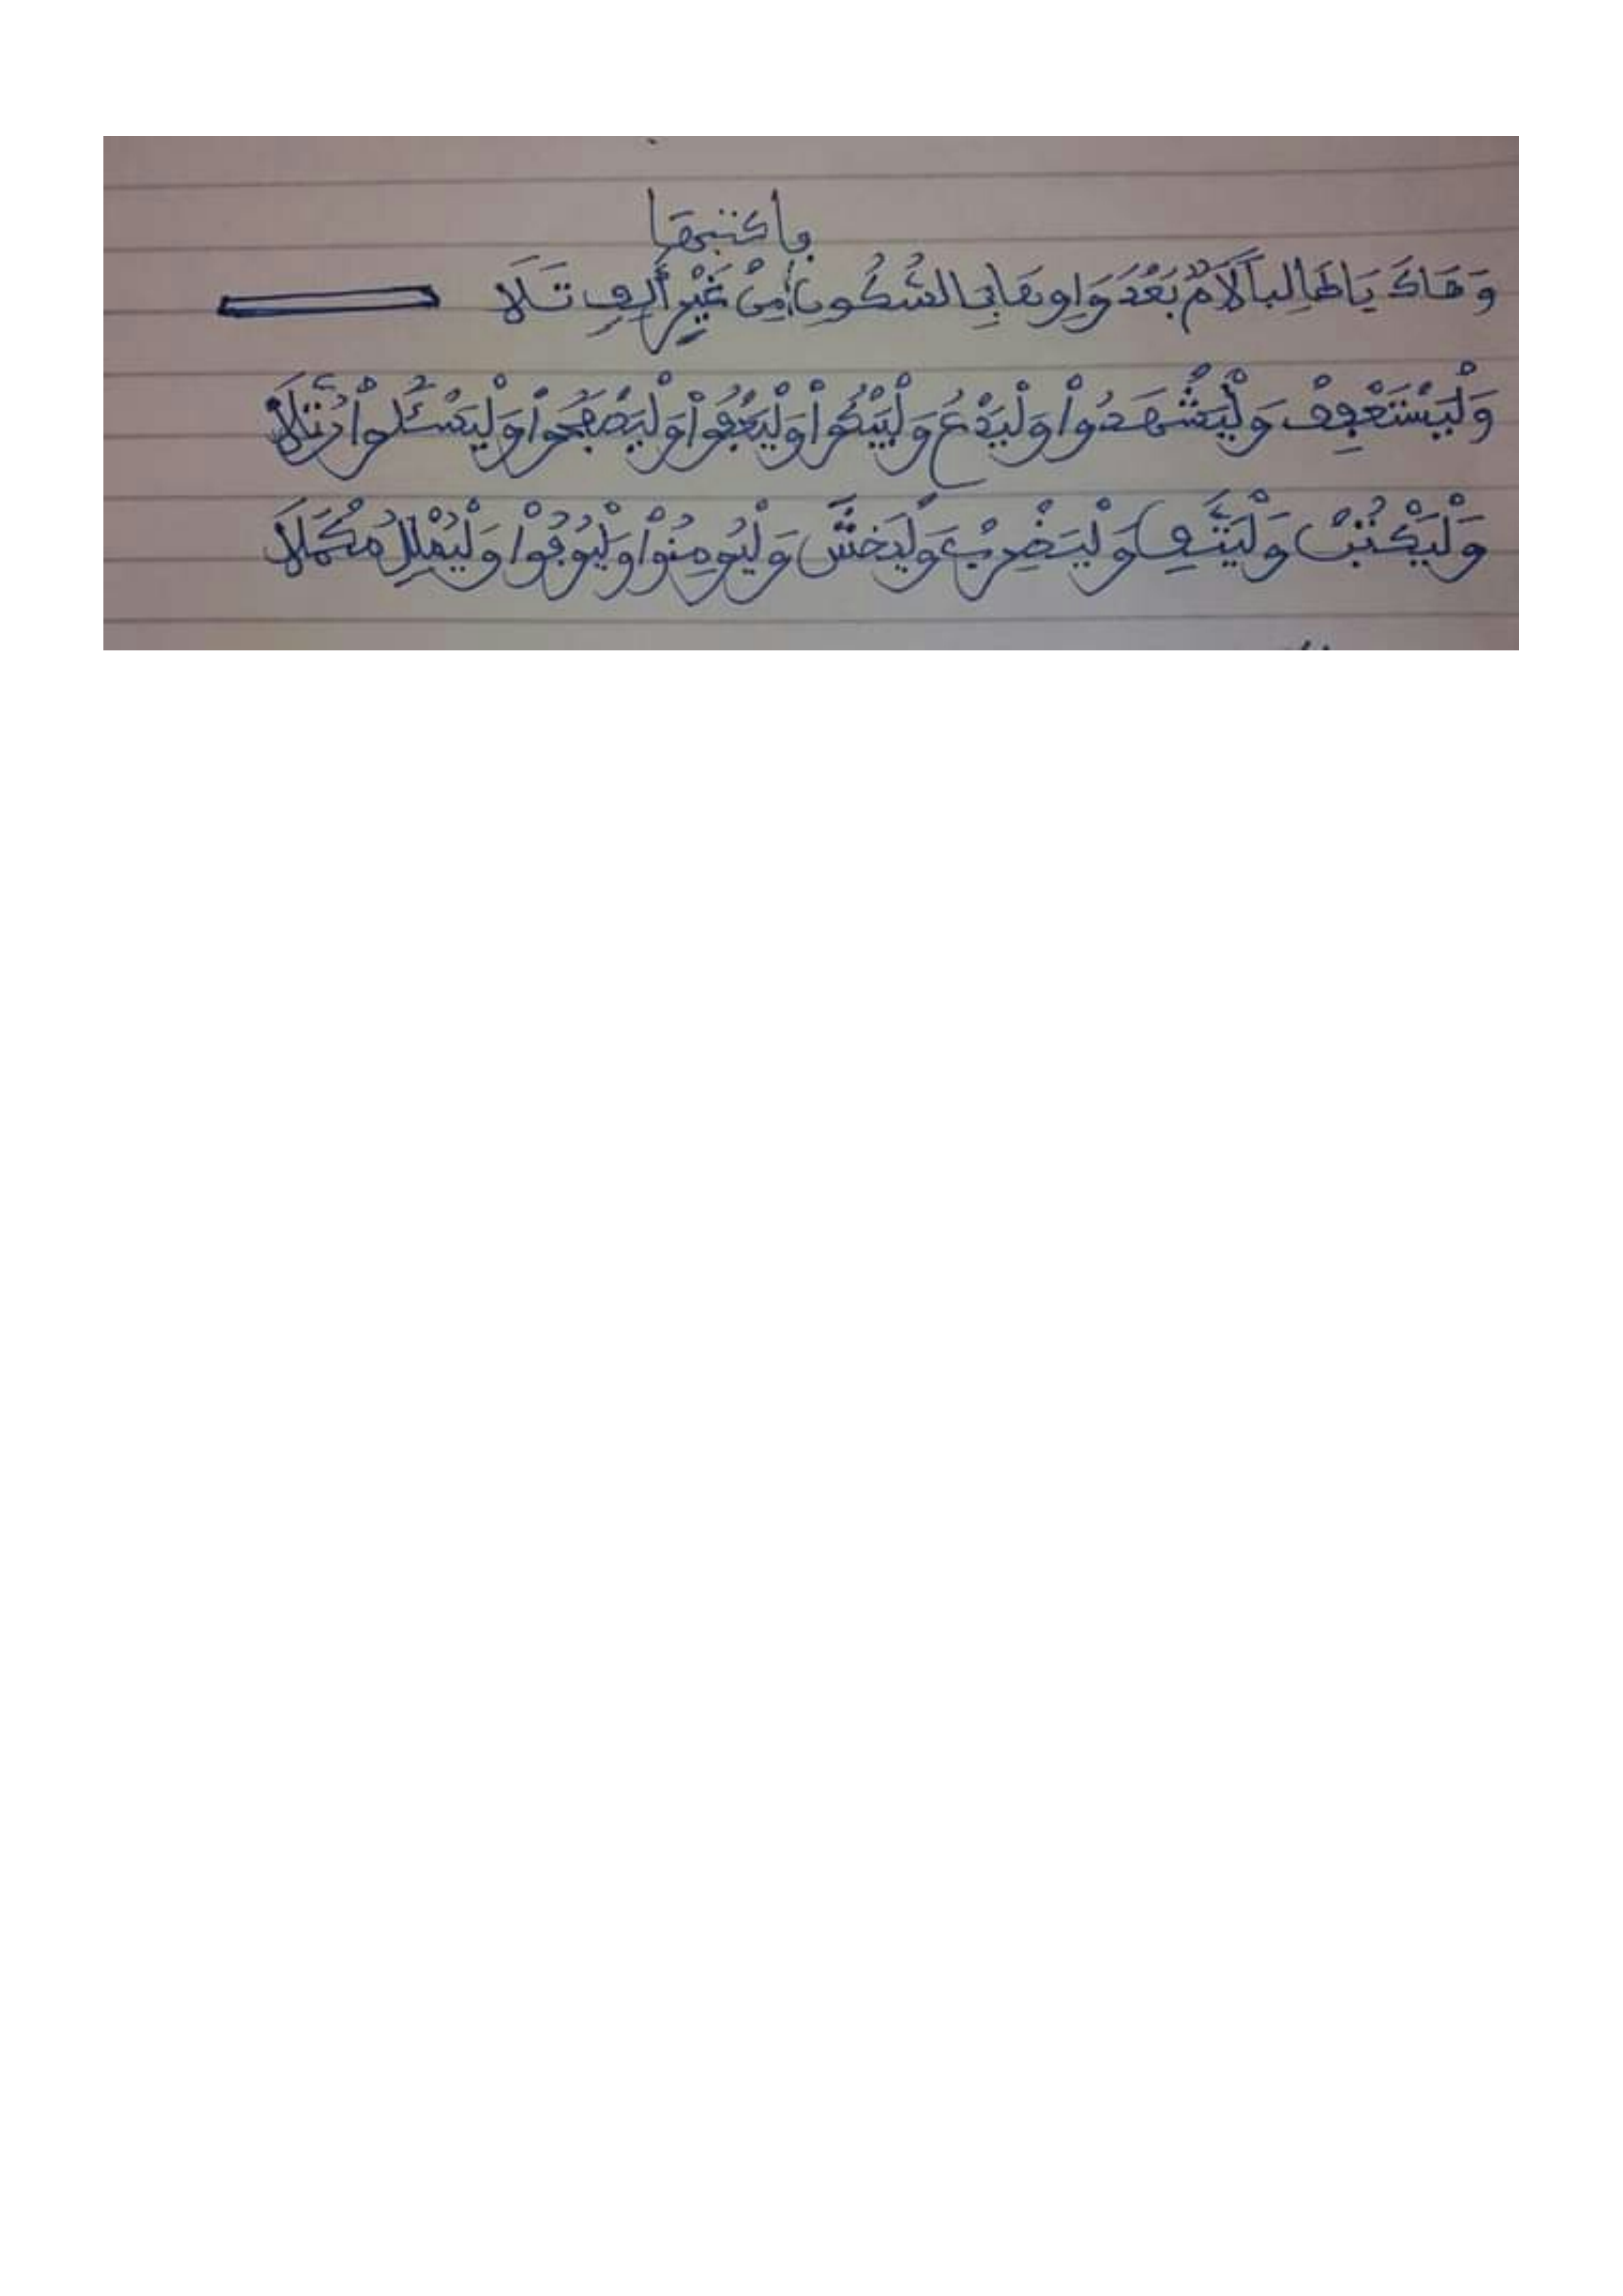 فاكتبها
وَهَاكَ يَا طَالِباً لَامٌ بَعْدَ وَاوٍ بِقَابِ الشُّكُونِ مِنْ غَيْرِ أَلِفٍ تَلَا
وَلْيَسْتَعْفِفْ وَلْيَشْهَدُواْ وَلْيَدْعُ وَلْيَبْكُواْ وَلْيَعْفُواْ وَلْيَصْفَحُواْ وَلْيَسْـَٔلُواْ رَتِّلَا
وَلْيَكْتُبْ وَلْيَتَّقِ وَلْيَضْرِبْ وَلْيَخْشَ وَلْيُومِنُواْ وَلْيُوفُواْ وَلْيُمْلِلْ مُكْمَلَا